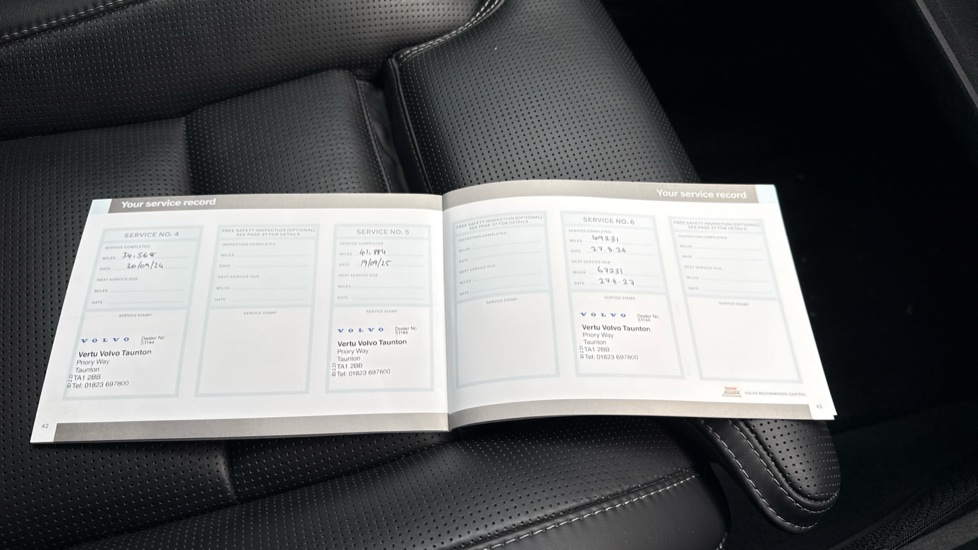 Your service record
SERVICE NO. 4
SERVICE COMPLETED
MILES 34,568
DATE 20/09/24
NEXT SERVICE DUE
MILES
DATE
SERVICE STAMP
VOLVO Dealer No.
51144
Vertu Volvo Taunton
Priory Way
Taunton
TA1 2BB
Tel: 01823 697800
42
FREE SAFETY INSPECTION (OPTIONAL)
SEE PAGE 37 FOR DETAILS
INSPECTION COMPLETED
MILES
DATE
NEXT SERVICE DUE
MILES
DATE
SERVICE STAMP
SERVICE NO. 5
SERVICE COMPLETED
MILES 41,884
DATE 19/09/25
NEXT SERVICE DUE
MILES
DATE
SERVICE STAMP
VOLVO Dealer No.
51144
Vertu Volvo Taunton
Priory Way
Taunton
TA1 2BB
Tel: 01823 697800
Your service record
FREE SAFETY INSPECTION (OPTIONAL)
SEE PAGE 37 FOR DETAILS
INSPECTION COMPLETED
MILES
DATE
NEXT SERVICE DUE
MILES
DATE
SERVICE STAMP
SERVICE NO. 6
SERVICE COMPLETED
MILES 49231
DATE
NEXT SERVICE DUE
MILES 67231
DATE
SERVICE STAMP
VOLVO Dealer No.
51144
Vertu Volvo Taunton
Priory Way
Taunton
TA1 2BB
Tel: 01823 697800
FREE SAFETY INSPECTION (OPTIONAL)
SEE PAGE 37 FOR DETAILS
INSPECTION COMPLETED
MILES
DATE
NEXT SERVICE DUE
MILES
DATE
SERVICE STAMP
VOLVO RECOMMENDS CASTROL
43